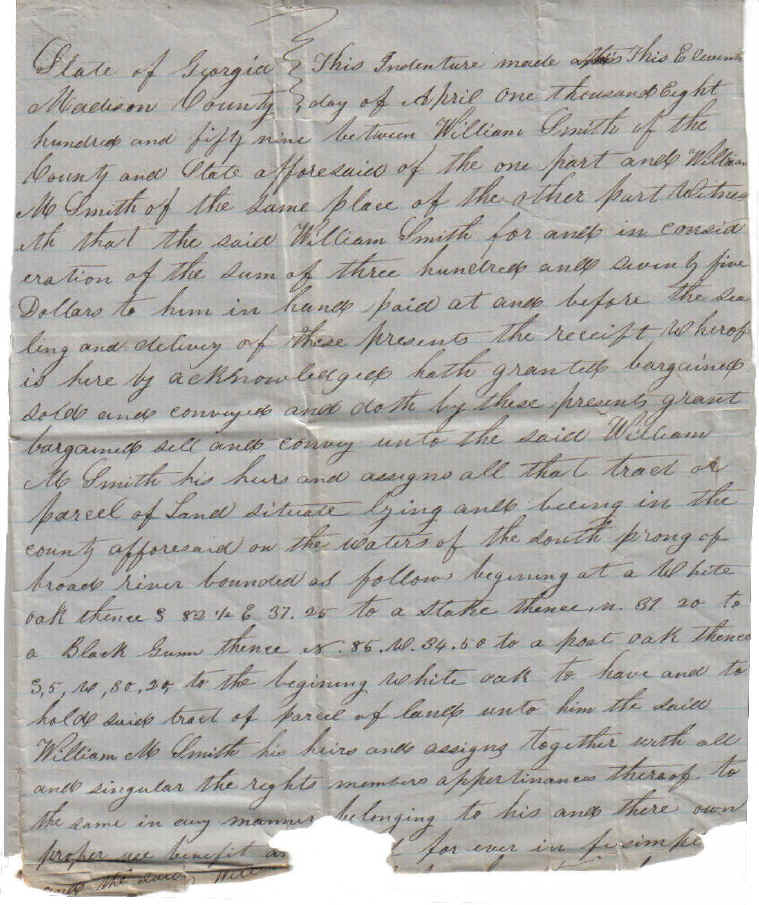 State of Georgia This Indenture made this This Eleventh
Madison County day of April one thousand Eight
hundred and fifty nine between William Smith of the
County and State afforesaid of the one part and William
M Smith of the same place of the other part Witness
eth that the said William Smith for and in consid
eration of the sum of three hundred and seventy five
Dollars to him in hand paid at and before the sea
ling and delivery of these presents the receipt wherof
is here by acknowledged hath granted bargained
sold and conveyed and doth by these presents grant
bargained sell and convey unto the said William
M Smith his heirs and assigns all that tract or
parcel of Land situate lying and beeing in the
county afforesaid on the waters of the south prong of
broad river bounded as follow begining at a White
oak thence S 82 ½ E 37.25 to a Stake thence N. 31 20 to
a Black Gumm thence N. 85. W. 34.50 to a post oak thence
S,5, W, 30,20, to the begining White oak to have and to
hold said tract of parcel of land unto him the said
William M Smith his heirs and assigns together with all
and singular the rights members appertinances thereof to
the same in any manner belonging to his and there own
proper use benefit an for ever in fe simple
and the said William